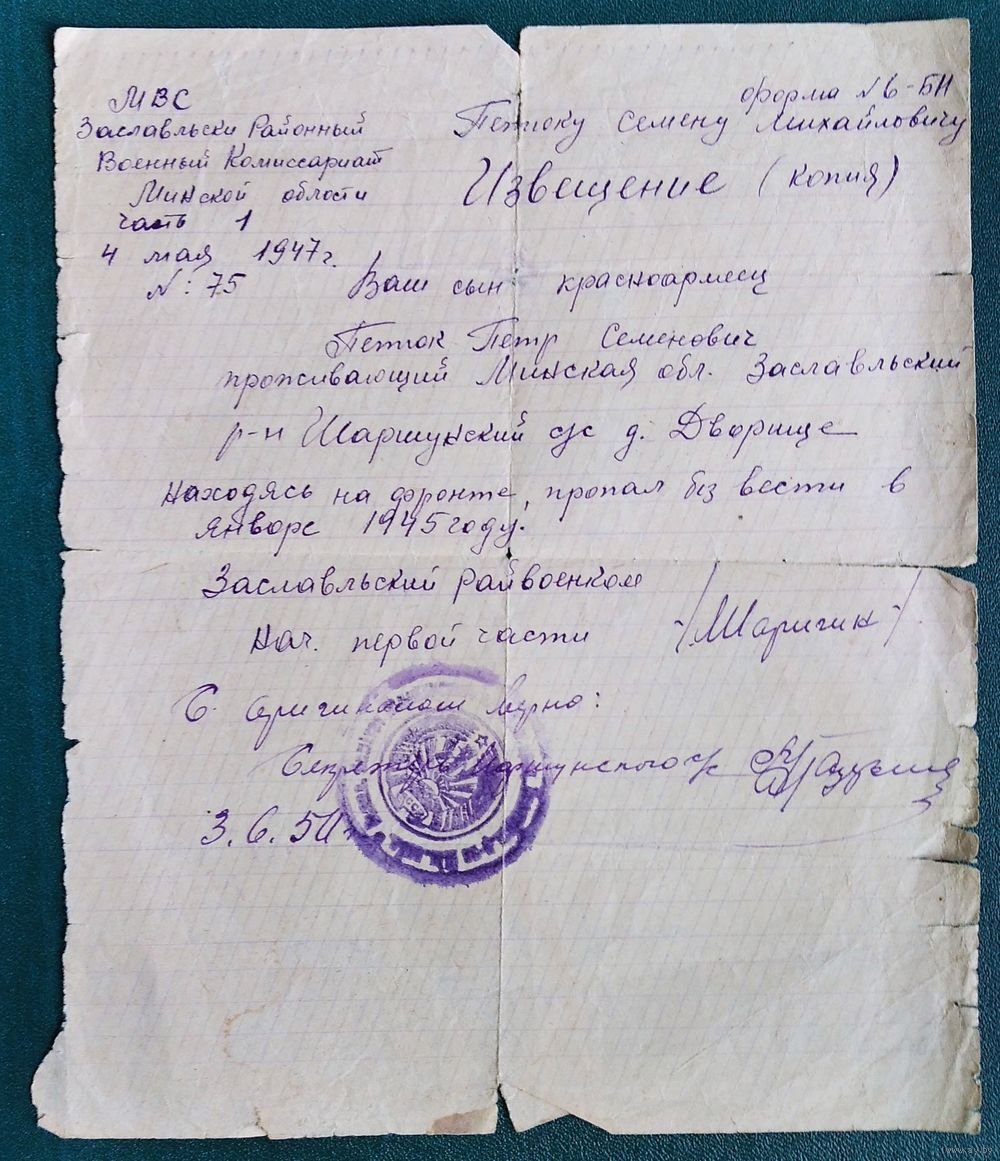 МВС
Заславльски Районный
Военный Комиссариат
Минской области
часть 1
4 мая 1947г.
N: 75
форма N 6-БН
Петюку Семену Михайловичу
Извещение (копия)
Ваш сын красноармеец
Петюк Петр Семенович
проживающий Минская обл. Заславльский
р-н Шаршунский с/с д. Дворище
Находясь на фронте, пропал без вести в
январе 1945 году.
Заславльский райвоенком
Нач. первой части /Шаригин/
С оригиналом верно:
Секретарь Шаршунского с/с
3.6.50